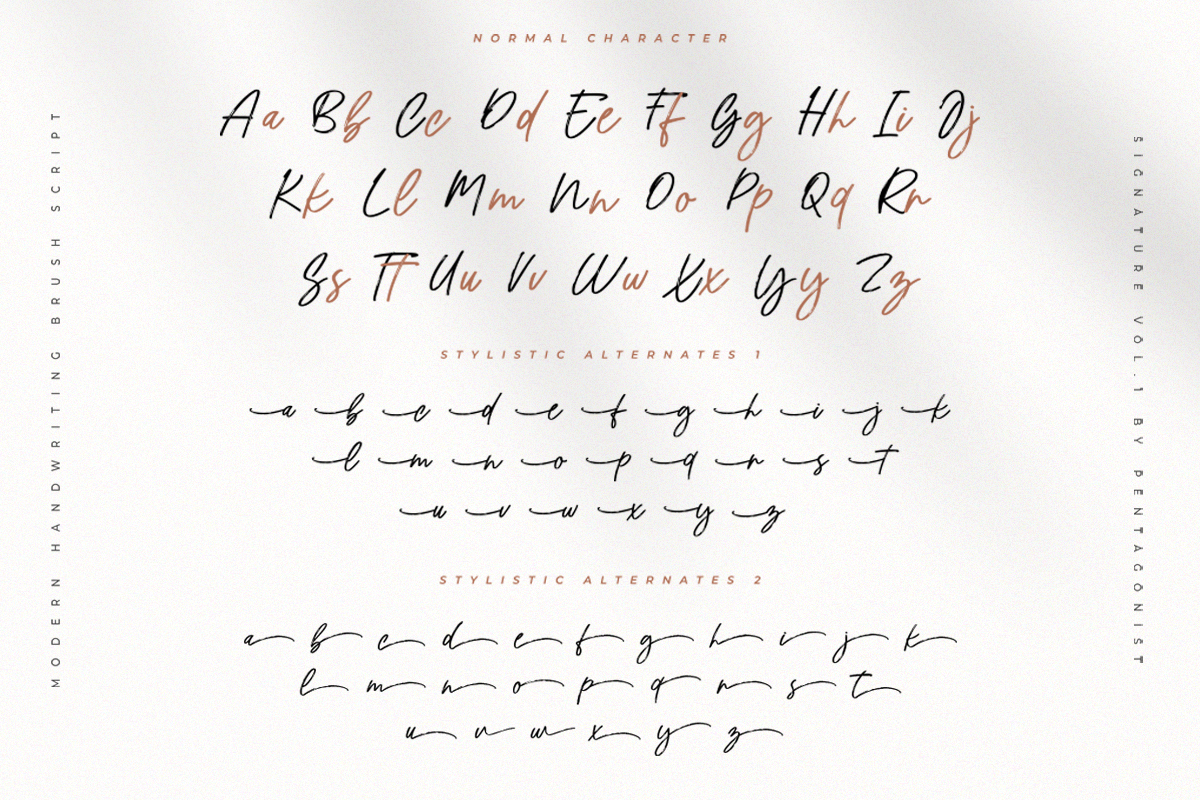 NORMAL CHARACTER
Aa Bb Cc Dd Ee Ff Gg Hh Ii Jj
Kk Ll Mm Nn Oo Pp Qq Rr
Ss Tt Uu Vv Ww Xx Yy Zz
STYLISTIC ALTERNATES 1
a b c d e f g h i j k
l m n o p q r s t
u v w x y z
STYLISTIC ALTERNATES 2
a b c d e f g h i j k
l m n o p q r s t
u v w x y z
MODERN HANDWRITING BRUSH SCRIPT
SIGNATURE VOL.1 BY PENTAGONIST